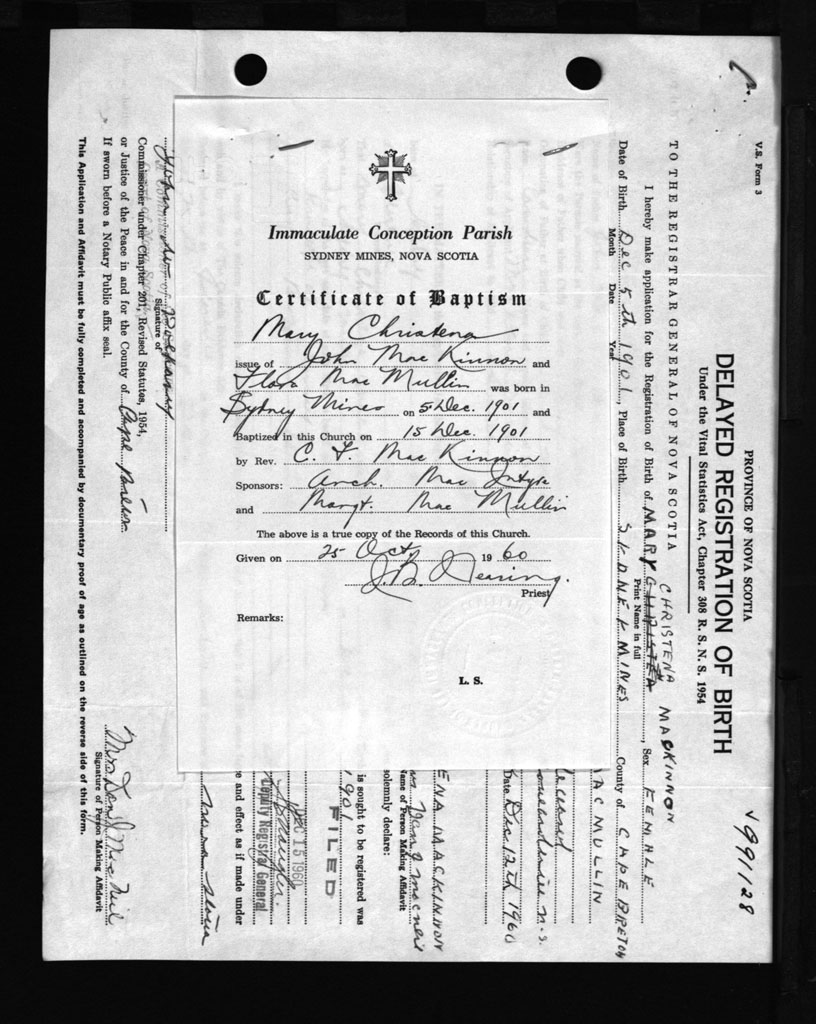 Immaculate Conception Parish
SYDNEY MINES, NOVA SCOTIA
Certificate of Baptism
Mary Christena
issue of John Mac Kinnon and
Flora Mac Mullin was born in
Sydney Mines on 5 Dec. 1901 and
Baptized in this Church on 15 Dec. 1901
by Rev. C. F. Mac Kinnon
Sponsors: Arch. Mac Intyre
and Margt. Mac Mullin
The above is a true copy of the Records of this Church.
Given on 25 Oct 19 60
J. B.
Priest
Remarks:
L. S.
V.S. Form 3
PROVINCE OF NOVA SCOTIA
V 991128
DELAYED REGISTRATION OF BIRTH
Under the Vital Statistics Act, Chapter 308 R. S. N. S. 1954
TO THE REGISTRAR GENERAL OF NOVA SCOTIA
CHRISTENA MACKINNON
I hereby make application for the Registration of Birth of MARY, Sex FEMALE
Print Name in full
Date of Birth Dec 5th 1901, Place of Birth SYDNEY MINES County of CAPE BRETON
Month Date Year
MAC MULLIN
Deceased
N.S.
Date Dec 12th 1960
ENA MACKINNON
Name of Person Making Affidavit
solemnly declare:
is sought to be registered was
1901
FILED
DEC 15 1960
Deputy Registrar General
e and effect as if made under
Nova Scotia
Signature of
Commissioner under Chapter 201, Revised Statutes, 1954,
or Justice of the Peace in and for the County of Cape Breton
If sworn before a Notary Public affix seal.
Mrs Dan J MacNeil
Signature of Person Making Affidavit
This Application and Affidavit must be fully completed and accompanied by documentary proof of age as outlined on the reverse side of this form.